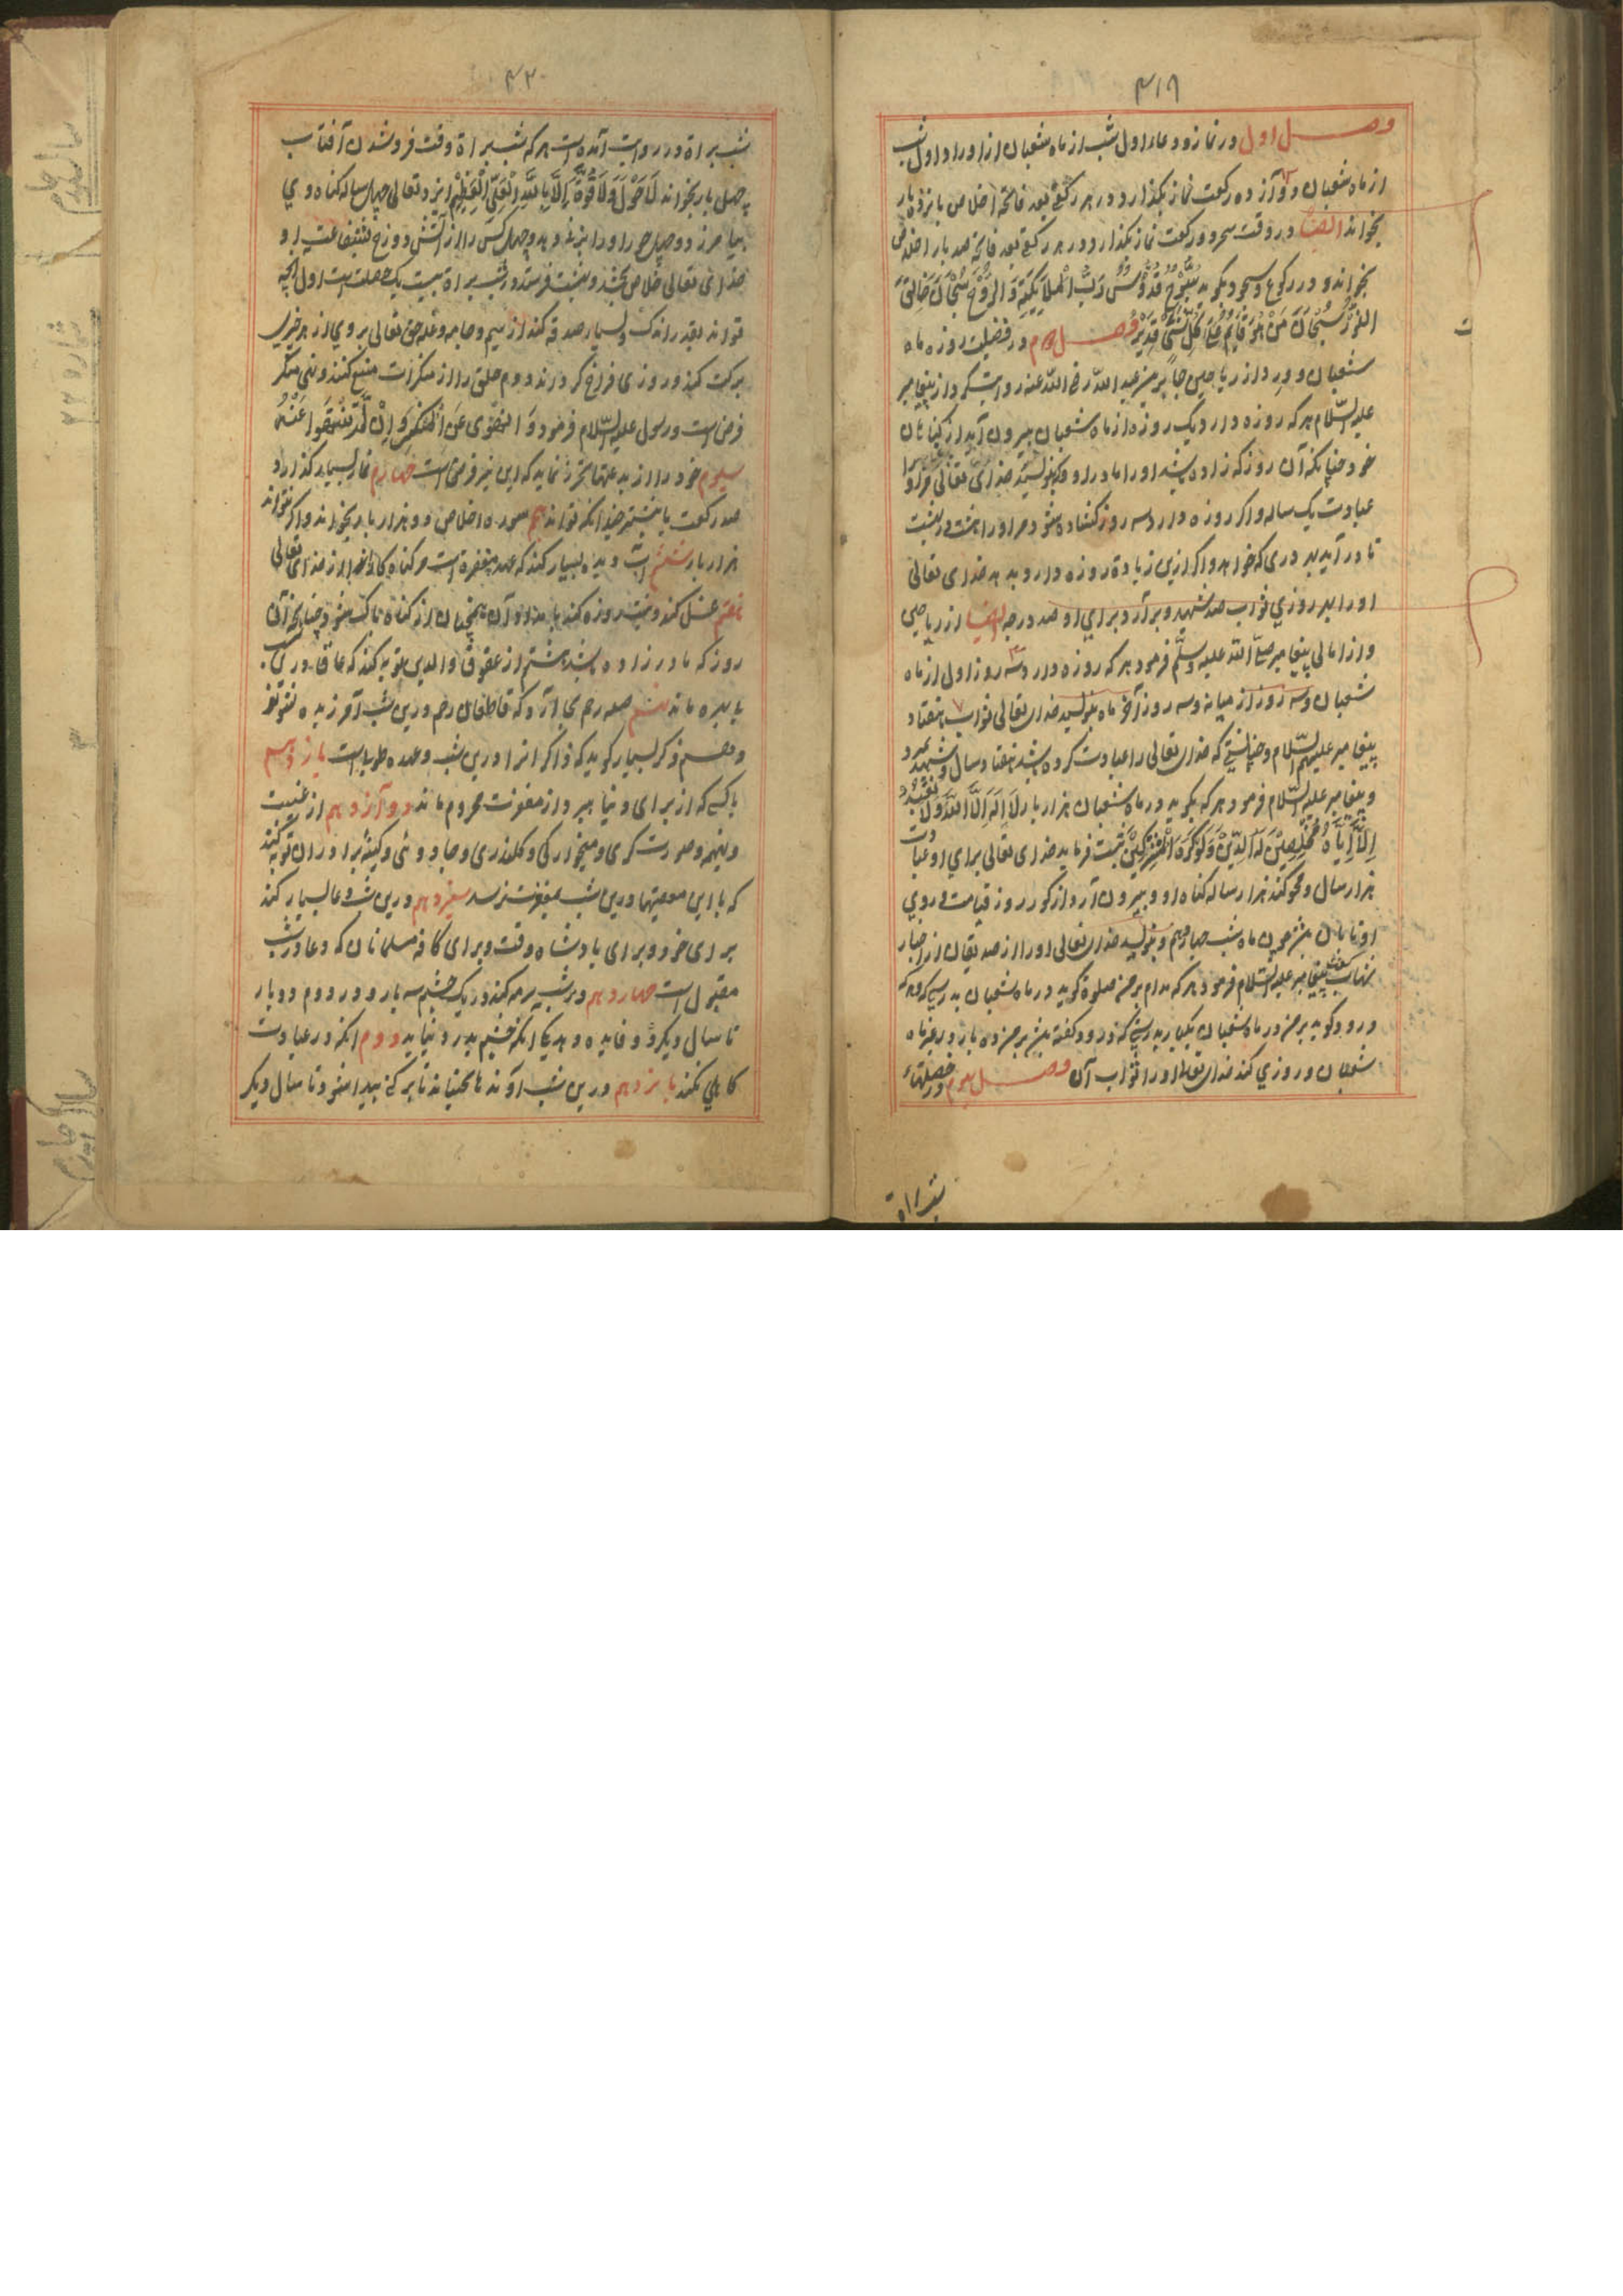 ۴۱۹
وصل اول در نماز و دعاء اول شب از ماه شعبان از اوراد اول شب
از ماه شعبان دوازده رکعت نماز بکذارد و در هر رکعتی بعد فاتحه اخلاص پانزده بار
بخواند ایضا در وقت سحر دو رکعت نماز بکذارد و در هر رکعتی بعد فاتحه صد بار اخلاص
بخواند و در رکوع و سجود بکوید سُبُّوحٌ قُدُّوسٌ رَبُّ الْمَلَائِكَةِ وَالرُّوْحِ سُبْحَانَ خَالِقِ
النُّوْرِ سُبْحَانَ مَنْ هُوَ قَائِمٌ عَلٰی كُلِّ شَیْءٍ قَدِیْرٌ وصل دوم در فضیلت روزه ماه
شعبان و ورد از ریاحین جابر بن عبد الله رضی الله عنه روایت کرد از پیغامبر
علیه السلام هر که روزه دارد یک روزه از ماه شعبان بیرون آید از کناهان
خود چنانکه آن روز که زاده باشد او را مادر او و بنویسد خدای تعالی مر او را
عبادت یک ساله و اکر روزه دارد سه روز کشاده شود مر او را هشت در بهشت
تا در آید بهر دری که خواهد و اکر ازین زیادة روزه دارد بدهد خدای تعالی
او را بهر روزی ثواب صد شهید و برآرد برای او صد درجه ایضا از ریاحین
و از امالی پیغامبر صلی الله علیه وسلم فرمود هر که روزه دارد سه روز اول از ماه
شعبان و سه روز از میانه و سه روز آخر ماه بنویسد خدای تعالی ثواب هفتاد
پیغامبر علیهم السلام و چنانستی که خدای تعالی را عبادت کرده باشد هفتاد سال و شهید میرد
و پیغامبر علیه السلام فرمود هر که بکوید در ماه شعبان هزار بار لَا اِلٰهَ اِلَّا اللهُ وَلَا نَعْبُدُ
اِلَّا اِیَّاهُ مُخْلِصِیْنَ لَهُ الدِّیْنَ وَلَوْ كَرِهَ الْمُشْرِكِیْنَ ثبت فرماید خدای تعالی برای او عبادت
هزار سال و محو کند هزار ساله کناه او و بیرون آرد از کور روز قیامت و روی
او تابان همچون ماه شب چهاردهم و بنویسد خدای تعالی او را از صدیقان از اخبار
شهاب پیغامبر علیه السلام فرمود هر که مدام بر من صلوة کوید در ماه شعبان بدرستی که هر که
درود کوید بر من در ماه شعبان یکبار بدرستی که درود کفته باشد بر من ده بار در غیر ماه
شعبان و روزی کند خدای تعالی او را ثواب آن وصل سوم در خصلتهاء
شب براة
۴۲۰
شب براة در روایت آمده است هر که شب براة وقت فرو شدن آفتاب
چهل بار بخواند لَا حَوْلَ وَلَا قُوَّةَ اِلَّا بِاللهِ الْعَلِیِّ الْعَظِیْمِ ایزد تعالی چهل ساله کناه وی
بیامرزد و چهل حور او را بزنی دهد و چهل کس را از آتش دوزخ بشفاعت او
خدای تعالی خلاص بخشد و بهشت فرستد و در شب براة بیست یک خصلت است اول آنچه
تواند بقدر اندک و بسیار صدقه کند از سیم و جامه و غله حق تعالی بر وی از هر چیزی
برکت کند و روزی فراخ کرداند دوم خلق را از منکرات منع کنند و نهی منکر
فرض است و رسول علیه السلام فرمود
سیوم خود را از بدعتها تحرز نماید که این نیز فرض است چهارم نماز بسیار کذارد
صد رکعت یا بیشتر چندانکه تواند پنجم سوره اخلاص دو هزار بار بخواند و اکر نتواند
هزار بار ششم آب دیده بسیار کند که عهد مغفرة است هر کناه
هفتم غسل کند و نیت روزه کند بامداد آن همچنان از کناه پاک شود چنانچه آن
روز که مادر زاده باشد هشتم از عقوق والدین توبه کند که عاق درین
بابهره ماند نهم صله رحم بجا آرد که قاطعان رحم درین شب آمرزیده نشوند
دهم ذکر بسیار کوید که ذاکران را درین شب وعده طوبا است یازدهم
باکی که از برای دنیا ببرد از مغفرت محروم ماند دوازدهم از غیبت
و تهمت و صورت کری و میخوارکی و جادوئی و کینه برادران توبه کند
که با این معصیتها درین شب بمغفرت نرسد سیزدهم درین شب دعا بسیار کند
برای خود و برای بادشاه وقت و برای کافه مسلمانان که دعا درین شب
مقبول است چهاردهم درین شب سرمه کند در یک چشم سه بار و در دوم دو بار
تا سال دیکر دو فایده دهد یکی آنکه چشم بدرد نیاید دوم آنکه در عبادت
کاهلی نکند پانزدهم درین شب آوندها بجنباند تا برکت پیدا شود تا سال دیکر